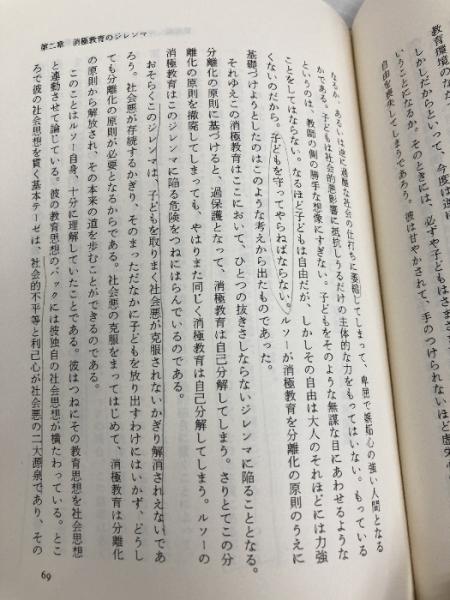 教育環境のなか
しかしだからといって、今度は逆に
いうことになるか。そのときには、必ずや子どもはさまざ
自由を喪失してしまうであろう。彼は甘やかされて、手のつけられないほど虚栄心
第二章　消極教育のジレンマ
なるか、あるいは逆に過酷な社会の仕打ちに萎縮してしまって、卑屈で嫉妬心の強い人間となる
かである。子どもは社会的悪影響に抵抗しうるだけの主体的な力をもってはいない。もっている
というのは、教師の側の勝手な想像にすぎない。子どもをそのような無謀な目にあわせるような
ことをしてはならない。なるほど子どもは自由だが、しかしその自由は大人のそれほどには力強
くないのだから。子どもを守ってやらねばならない。ルソーが消極教育を分離化の原則のうえに
基礎づけようとしたのはこのような考えから出たものであった。
それゆえこの消極教育はここにおいて、ひとつの抜きさしならないジレンマに陥ることとなる。
分離化の原則に基づけると、過保護となって、消極教育は自己分解してしまう。さりとてこの分
離化の原則を撤廃してしまっても、やはりまた同じく消極教育は自己分解してしまう。ルソーの
消極教育はこのジレンマに陥る危険をつねにはらんでいるのである。
おそらくこのジレンマは、子どもを取りまく社会悪が克服されないかぎり解消されえないであ
ろう。社会悪が存続するかぎり、そのまっただなかに子どもを放り出すわけにはいかず、どうし
ても分離化の原則が必要となるからである。社会悪の克服をまってはじめて、消極教育は分離化
の原則から解放され、その本来の道を歩むことができるのである。
このことはルソー自身、十分に理解していたことである。彼はつねにその教育思想を社会思想
と連動させて論じている。彼の教育思想のバックには彼独自の社会思想が横たわっている。とこ
ろで彼の社会思想を貫く基本テーゼは、社会的不平等と利己心が社会悪の二大源泉であり、その
69